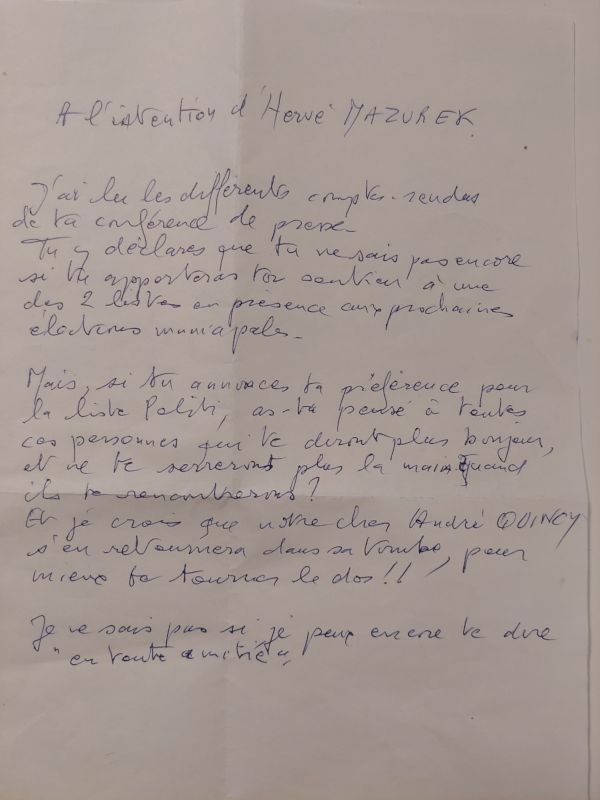 A l'intention d'Hervé MAZUREK
J'ai lu les différents comptes-rendus
de ta conférence de presse
Tu y déclares que tu ne sais pas encore
si tu apporteras ton soutien à une
des 2 listes en présence aux prochaines
élections municipales.
Mais, si tu annonces ta préférence pour
la liste Politi, as-tu pensé à toutes
ces personnes qui te diront plus bonjour,
et ne te serreront plus la main quand
ils te rencontreront ?
Et je crois que notre cher André QUINCY
s'en retournera dans sa tombe, pour
mieux te tourner le dos !!
Je ne sais pas si je peux encore te dire
"en toute amitié"